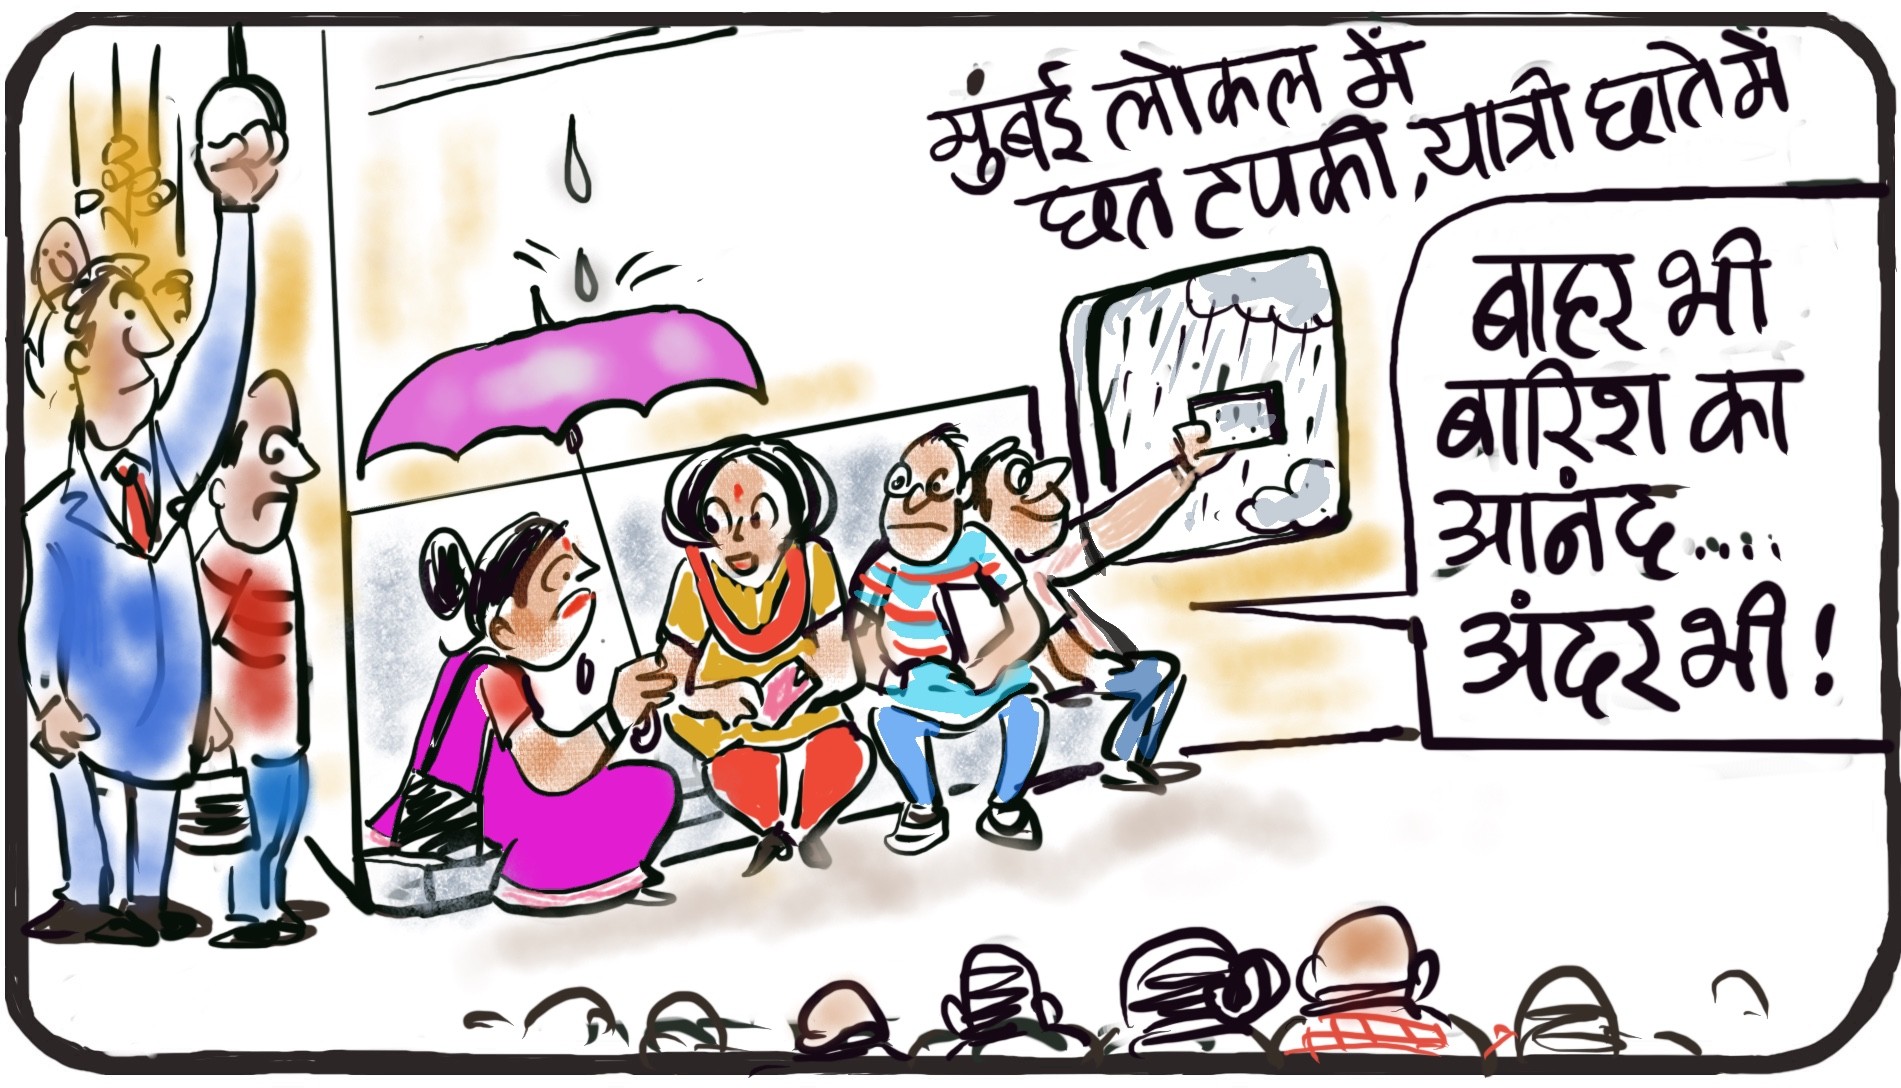 मुंबई लोकल में
छत टपकी, यात्री छाते में
बाहर भी
बारिश का
आनंद.....
अंदर भी!